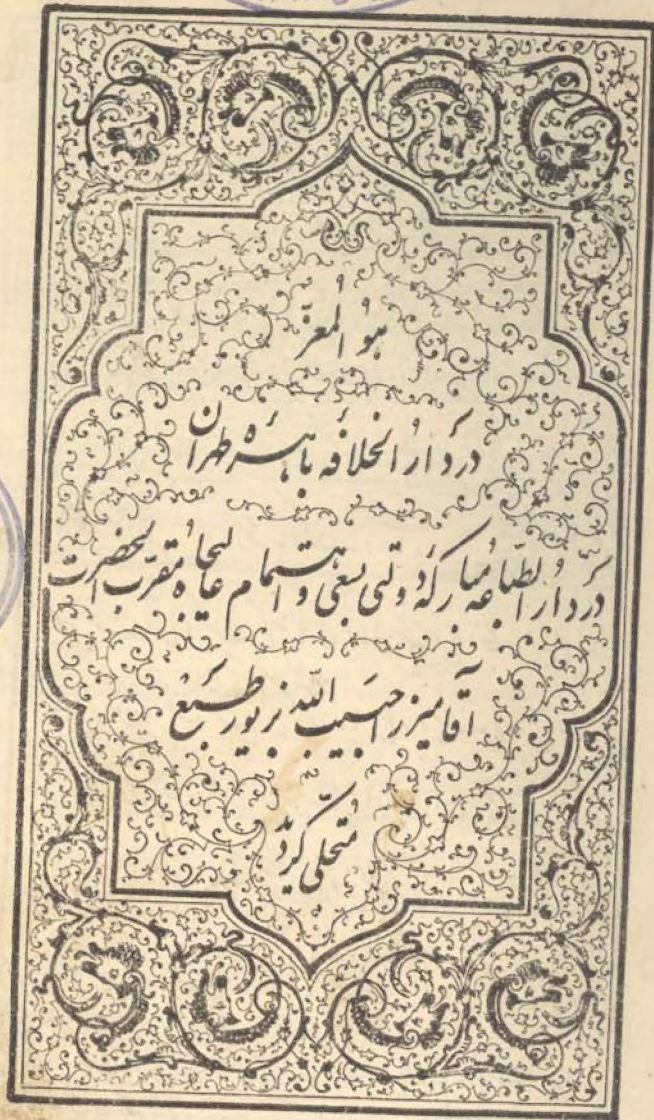 هو المعزّ
در دار الخلافه باهره طهران
در دار الطّباعه مبارکه دولتی بسعی و اهتمام عالیجاه مقرّب الحضرت
آقا میرزا حبیب الله بزیور طبع
متحلّی گردید